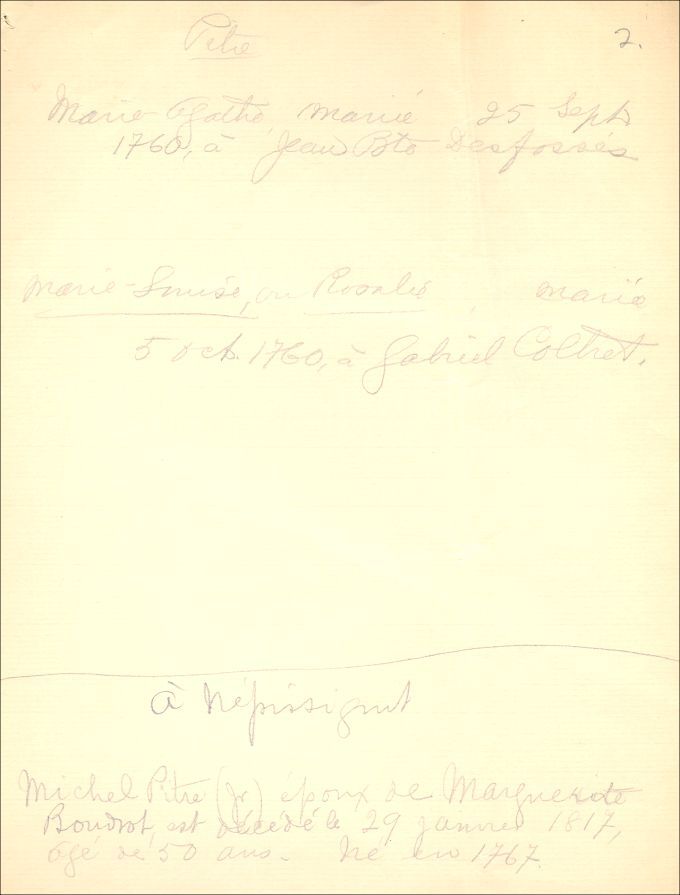 Pitre
2.
Marie Agathe, marié 25 Sept.
1760, à Jean Bte Desfossés
Marie-Louise, ou Rosalie, marié
5 oct. 1760, à Gabriel Coltret.
à Népissiguit
Michel Pitre (Jr) époux de Marguerite
Boudrot, est décédé le 29 janvier 1817,
agé de 50 ans. Né en 1767.